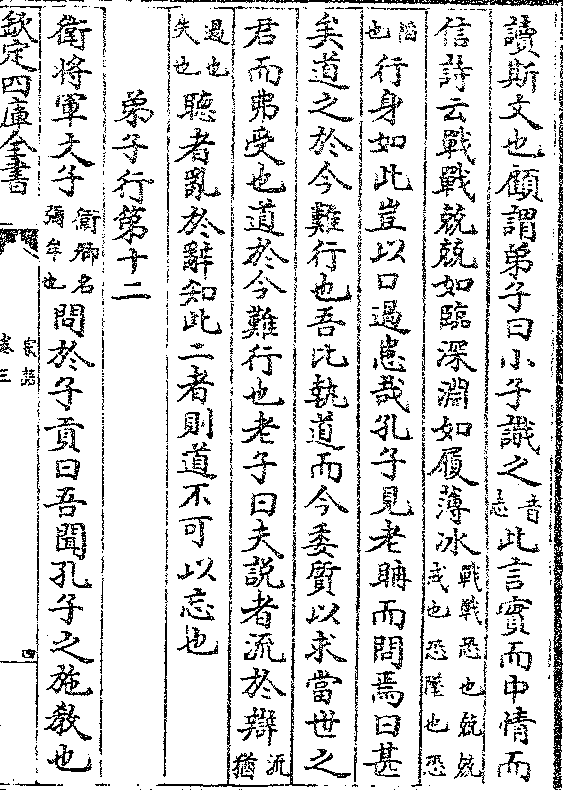 讀斯文也顧謂弟子曰小子識之音志此言實而中情而
信詩云戰戰兢兢如臨深淵如履薄冰戰戰恐也兢兢戒也恐墜也恐
陷也行身如此豈以口過患哉孔子見老聃而問焉曰甚
矣道之於今難行也吾比執道而今委質以求當世之
君而弗受也道於今難行也老子曰夫說者流於辯流猶
過也失也聽者亂於辭知此二者則道不可以忘也
弟子行第十二
衛將軍文子衛卿名彌牟也問於子貢曰吾聞孔子之施教也
欽定四庫全書
家語
卷三
四